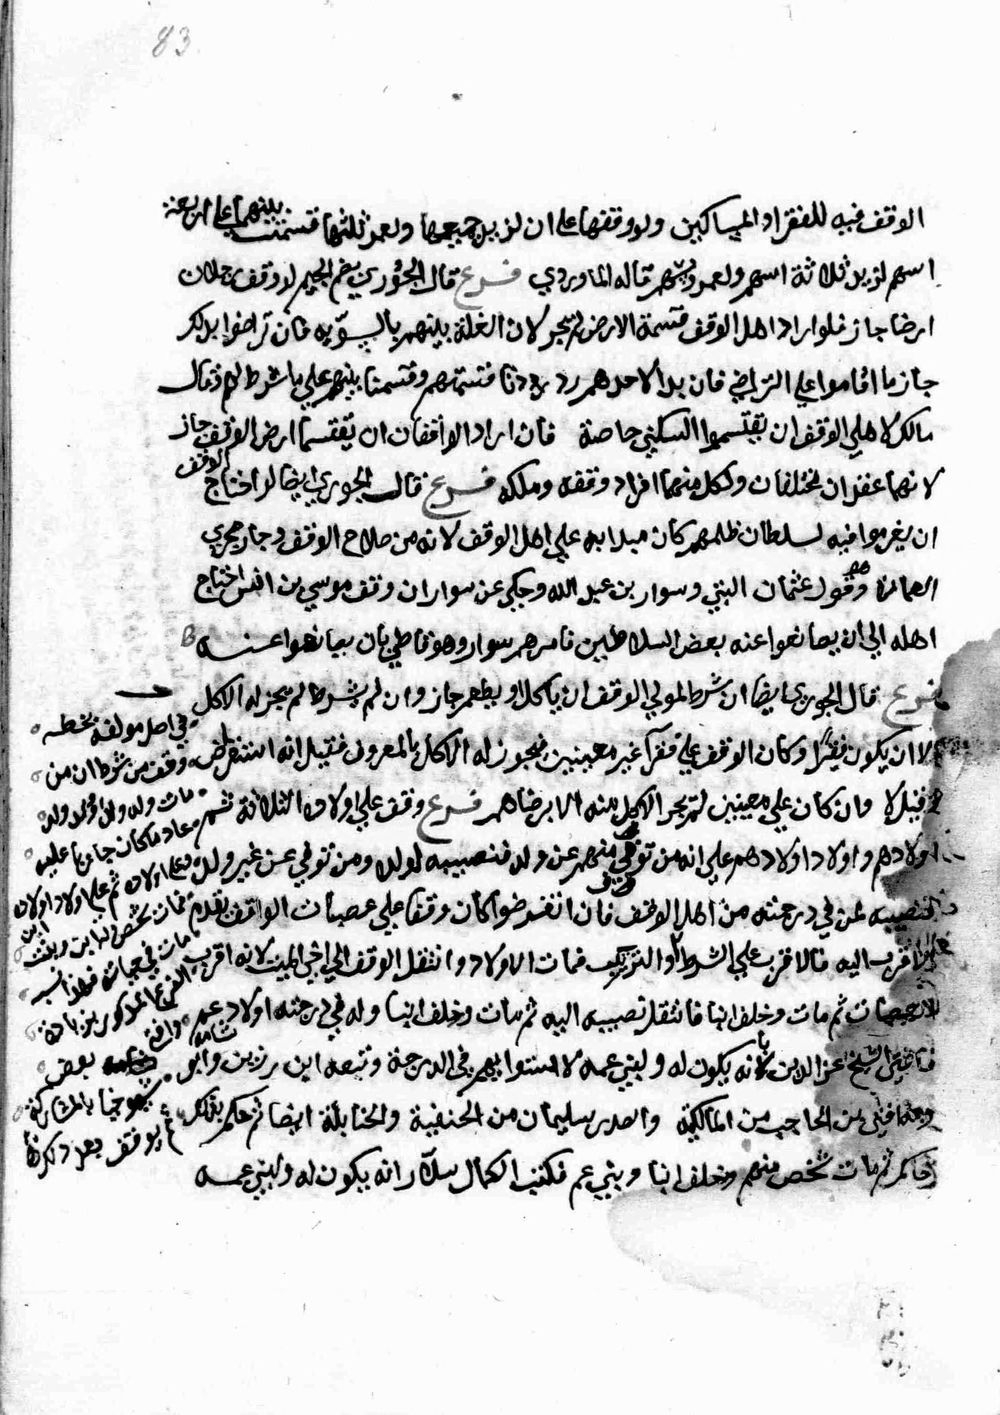 83
الوقف فيه للفقرا والمساكين ولو وقفها على ان لزيد جميعها ولعمرو ثلثها قسمت بينهما على اربعة
اسهم لزيد ثلاثة اسهم ولعمرو سهم قاله الماوردي فرع قال الجوري بضم الجيم لو وقف رجلان
ارضا جاز فلو اراد اهل الوقف قسمة الارض لم يجز لان الغلة بينهم بالسوية فان تراضوا بذلك
جاز ما اقاموا على التراضي فان بدا لاحدهم رد رددنا قسمتهم وقسمنا بينهم على ما شرط لهم وقال
مالك لاهل الوقف ان يقتسموا السكنى خاصة فان اراد الواقفان ان يقتسما ارض الوقف جاز
لانهما عقدان مختلفان ولكل منهما افراد وقفه وملكه فرع قال الجوري ايضا لو احتاج اهل الوقف
ان يغرموا فيه لسلطان ظلمهم كان مبدا به على اهل الوقف لانه من صلاح الوقف وجار مجرى
العمارة وهو قول عثمان البتي وسوار بن عبد الله وحكي عن سوار ان وقف موسى بن انس احتاج
اهله الى ان يصانعوا عنه بعض السلاطين فامرهم سوار وهو قاض بان يصانعوا عنه
فرع قال الجوري ايضا ان شرط لمولي الوقف ان ياكل او يطعم جاز وان لم يشرط لم يجز له الاكل
الا ان يكون فقيرا وكان الوقف على فقرا غير معينين فيجوز له الاكل بالمعروف فقيل انه استقراض
وقيل لا وان كان على معينين لم يجز الاكل منه الا برضاهم فرع وقف على اولاده الثلاثة ثم
اولادهم واولاد اولادهم على انه من توفي منهم عن ولد فنصيبه لولده ومن توفي عن غير ولد
فنصيبه لمن في درجته من اهل الوقف فان انقرضوا كان وقفا على عصبات الواقف يقدم
الاقرب اليه فالاقرب على الشرط والترتيب فمات الاولاد وانتقل الوقف الى اخي الميت لانه اقرب
العصبات ثم مات وخلف ابنا فانتقل نصيبه اليه ثم مات وخلف ابنا وله في درجته اولاد عم
فافتى الشيخ عز الدين بانه يكون له ولبني عمه لاستوائهم في الدرجة وتبعه ابن رزين وابو
عمرو بن الحاجب من المالكية والصدر سليمان من الحنفية والحنابلة ايضا ثم حكم بذلك
حاكم ثم مات شخص منهم وخلف ابنا وبني عم فكتب الكمال سلار انه يكون له ولبني عمه
في اصل مولفه بخطه
وقف من شرط ان من
مات وله ولد او ولد ولد
عاد ما كان جاريا عليه
على اولاده ثم على اولاد اولاده